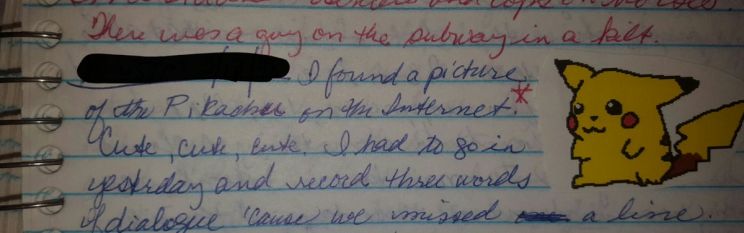 There was a guy on the subway in a kilt.
I found a picture
of the Pikachu on the Internet.*
Cute, cute, cute. I had to go in
yesterday and record three words
of dialogue 'cause we missed a line.